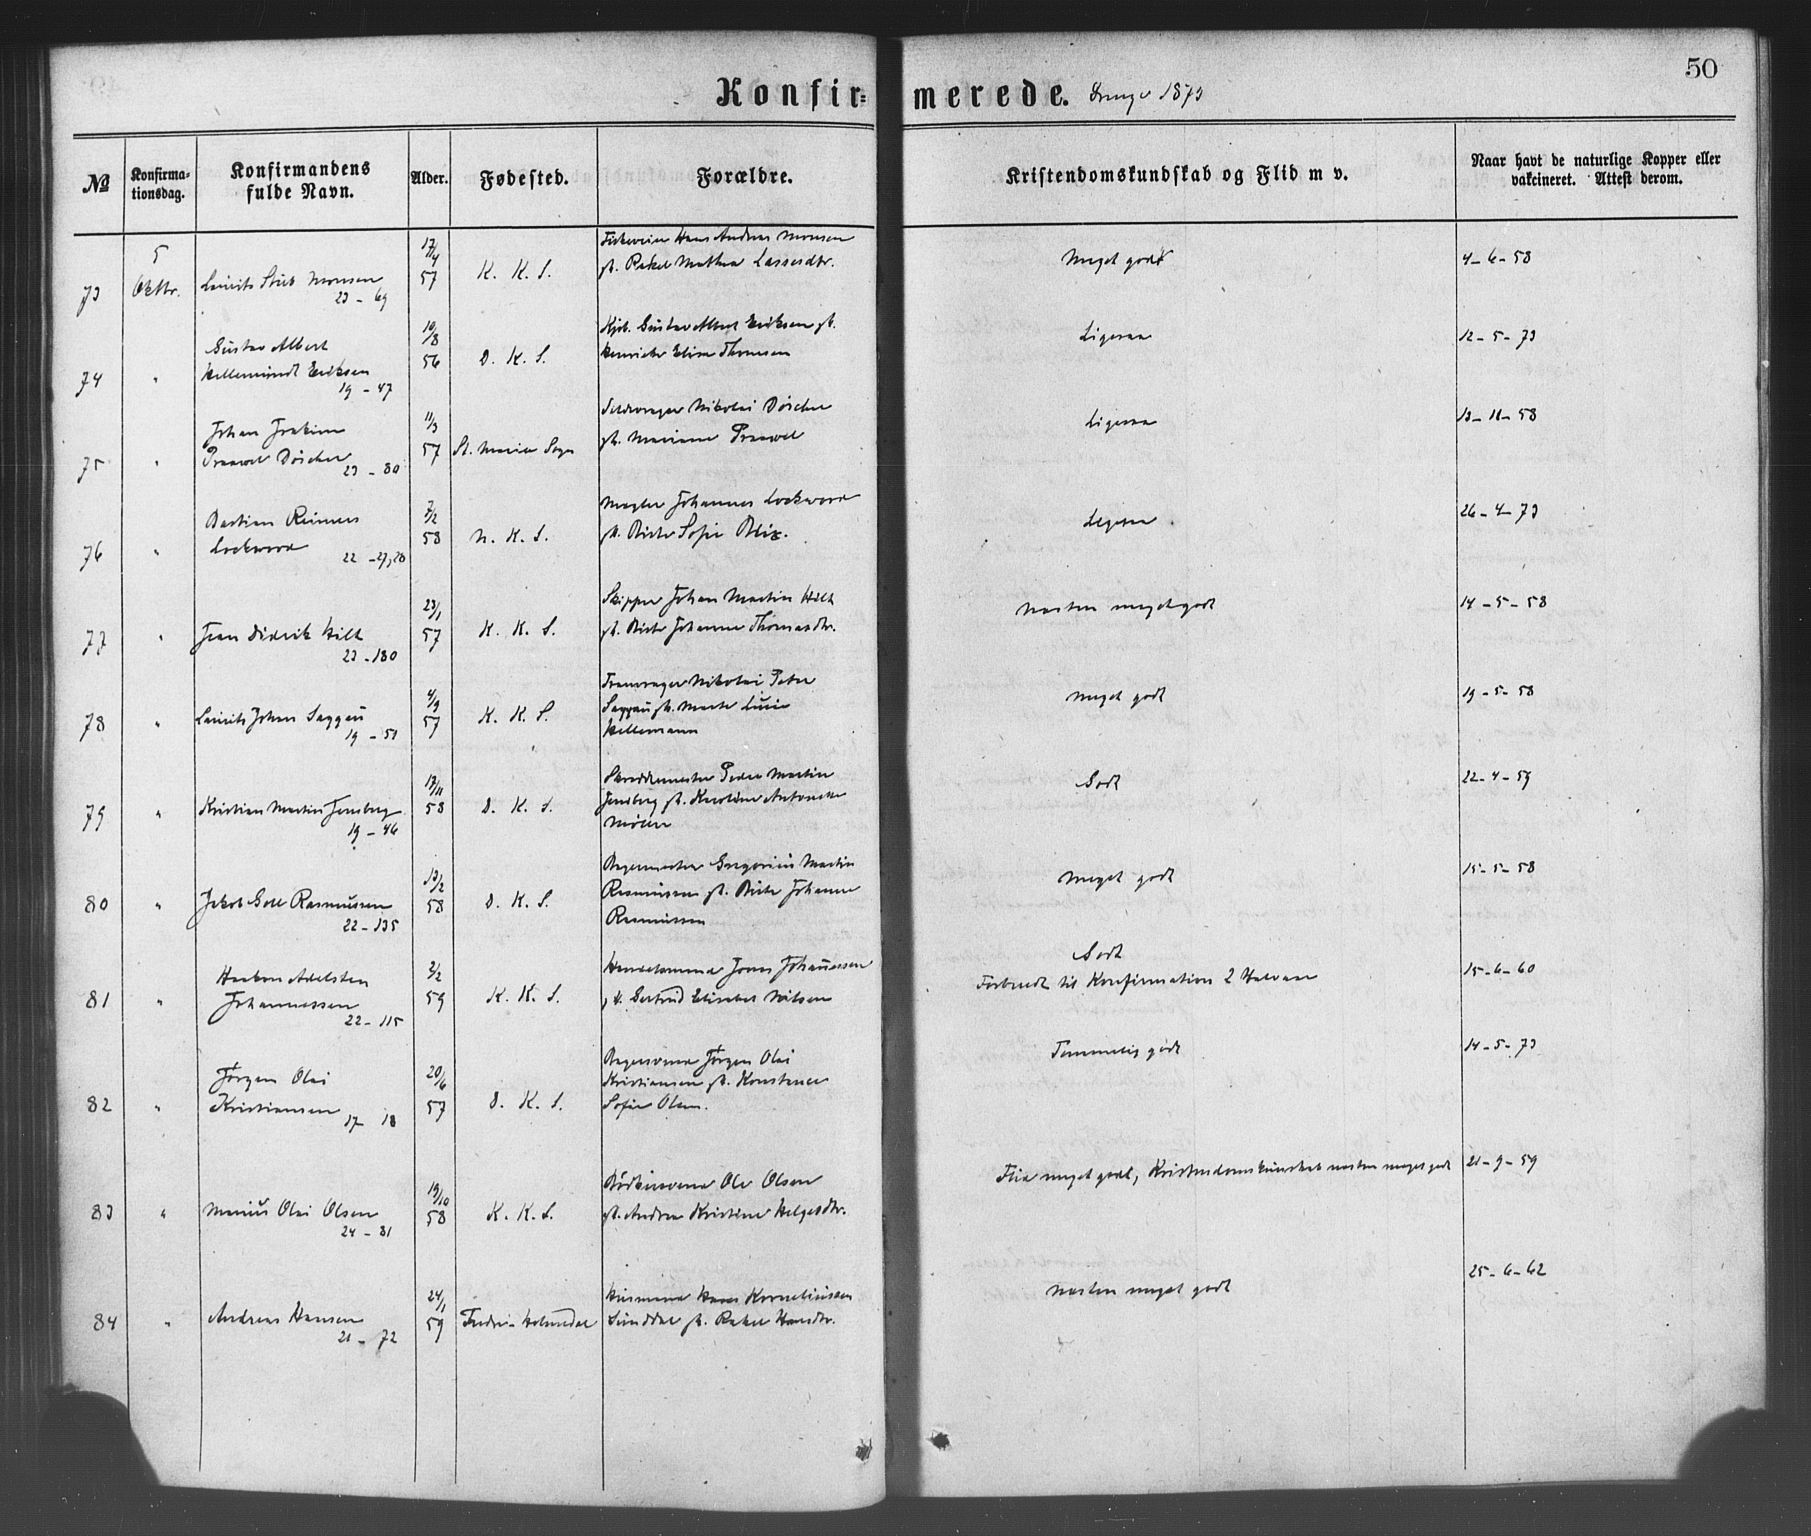 50
Konfirmerede. Drenge 1873
№
Konfirmationsdag.
Konfirmandens fulde Navn.
Alder.
Fødested.
Forældre.
Kristendomskundskab og Flid m v.
Naar havt de naturlige Kopper eller vakcineret. Attest derom.
73
5 Oktbr.
Laurits Stub Monsen
23 - 69
17/4 57
K. K. S.
Hans Andreas Monsen
gt. Rakel Mathea Lassesdtr.
Meget godt
4-6-58
74
"
Gustav Albert
Hellemundt Eriksen
19 - 47
19/8 56
D. K. S.
Kjøb. Gustav Albert Eriksen gt.
Henriette Elise Thomsen
Ligesaa
12-5-73
75
"
Johan Joakim
Prawel Döscher
23 - 80
11/3 57
St. Marie Sogn
Nikolai Döscher
gt. Mariane Prawel
Ligesaa
13-11-58
76
"
Bastian Reimers
Lockwood
22 - 27,28
7/2 58
N. K. S.
Megler Johannes Lockwood
gt. Birte Sofie Blix.
Ligesaa
26-4-73
77
"
Jean Didrik Hilt
23 - 180
23/1 57
K. K. S.
Skipper Johan Martin Hilt
gt. Birte Johanne Thomasdtr.
Næsten meget godt
14-5-58
78
"
Laurits Johan Saggau
19 - 51
4/9 57
K. K. S.
Nikolai Peter
Saggau gt. Marte Lucie
Hellemann
Meget godt
19-5-58
79
"
Kristian Martin Jensberg
19 - 46
13/11 58
D. K. S.
Skreddermester Peder Martin
Jensberg gt. Karoline Antonette
Möller
Godt
22-4-59
80
"
Jakob Gott Rasmussen
22 - 135
13/2 58
D. K. S.
Bagermester Gregorius Martin
Rasmussen gt. Birte Johanne
Rasmussen
Meget godt
15-5-58
81
"
Haakon Adelsten
Johannessen
22 - 115
2/2 59
K. K. S.
Handelsmand Jonas Johannessen
gt. Gertrud Elisabet Nilsen
Godt
Forberedt til Konfirmation 2 Halvaar
15-6-60
82
"
Jørgen Olai
Kristiansen
17 18
20/6 57
D. K. S.
Bagersvend Jørgen Olai
Kristiansen gt. Konstance
Sofie Olsen.
Temmelig godt
14-5-73
83
"
Marius Olai Olsen
24 - 81
19/10 58
K. K. S.
Bødkersvend Ole Olsen
gt. Andrea Kristine Helgesdtr.
Flid meget godt, Kristendomskundskab næsten meget godt
21-9-59
84
"
Andreas Hansen
21 - 72
24/1 59
Fredriksholmsdal
Husmand Hans Korneliussen
Sunddal gt. Rakel Hansdtr.
Næsten meget godt
25-6-62